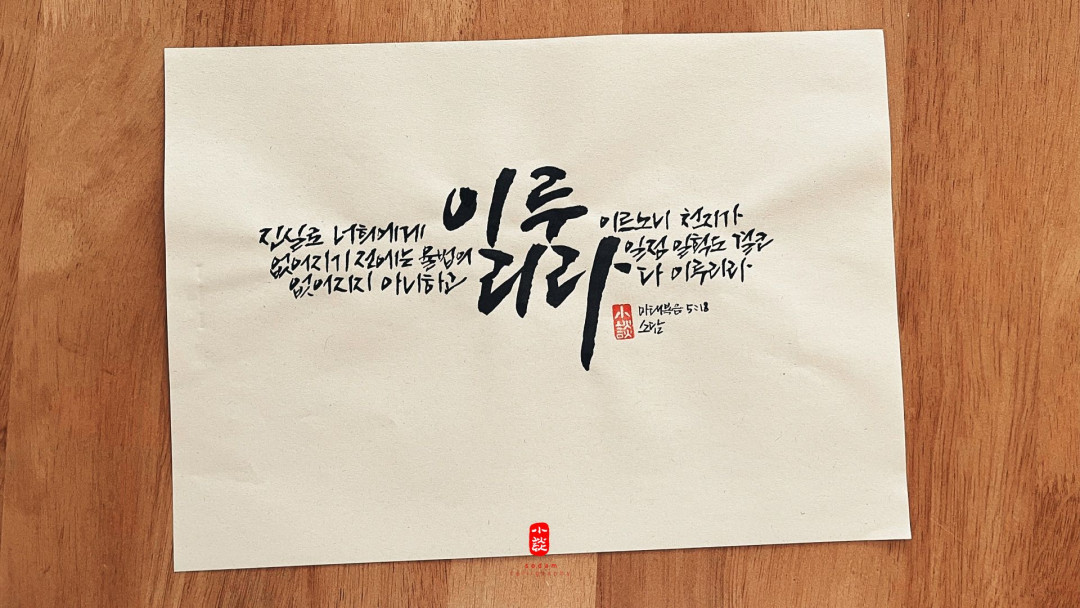 이루
리라
진실로 너희에게 이르노니 천지가
없어지기 전에는 율법의 일점 일획도 결코
없어지지 아니하고 다 이루리라
小談
마태복음 5:18
소담
小談
sodam